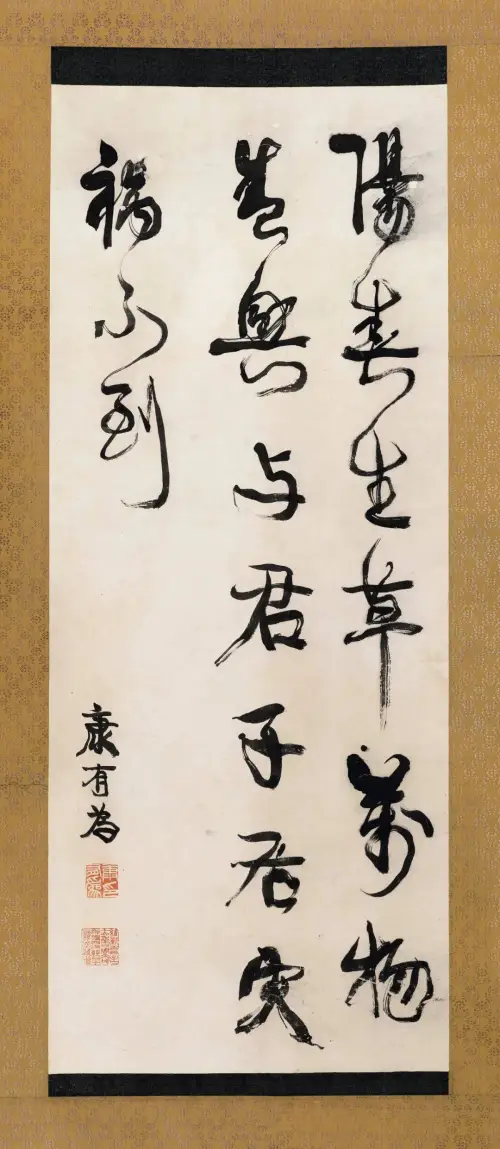 陽春生草萬物
盛興与君子居灾
禍不到
康有為